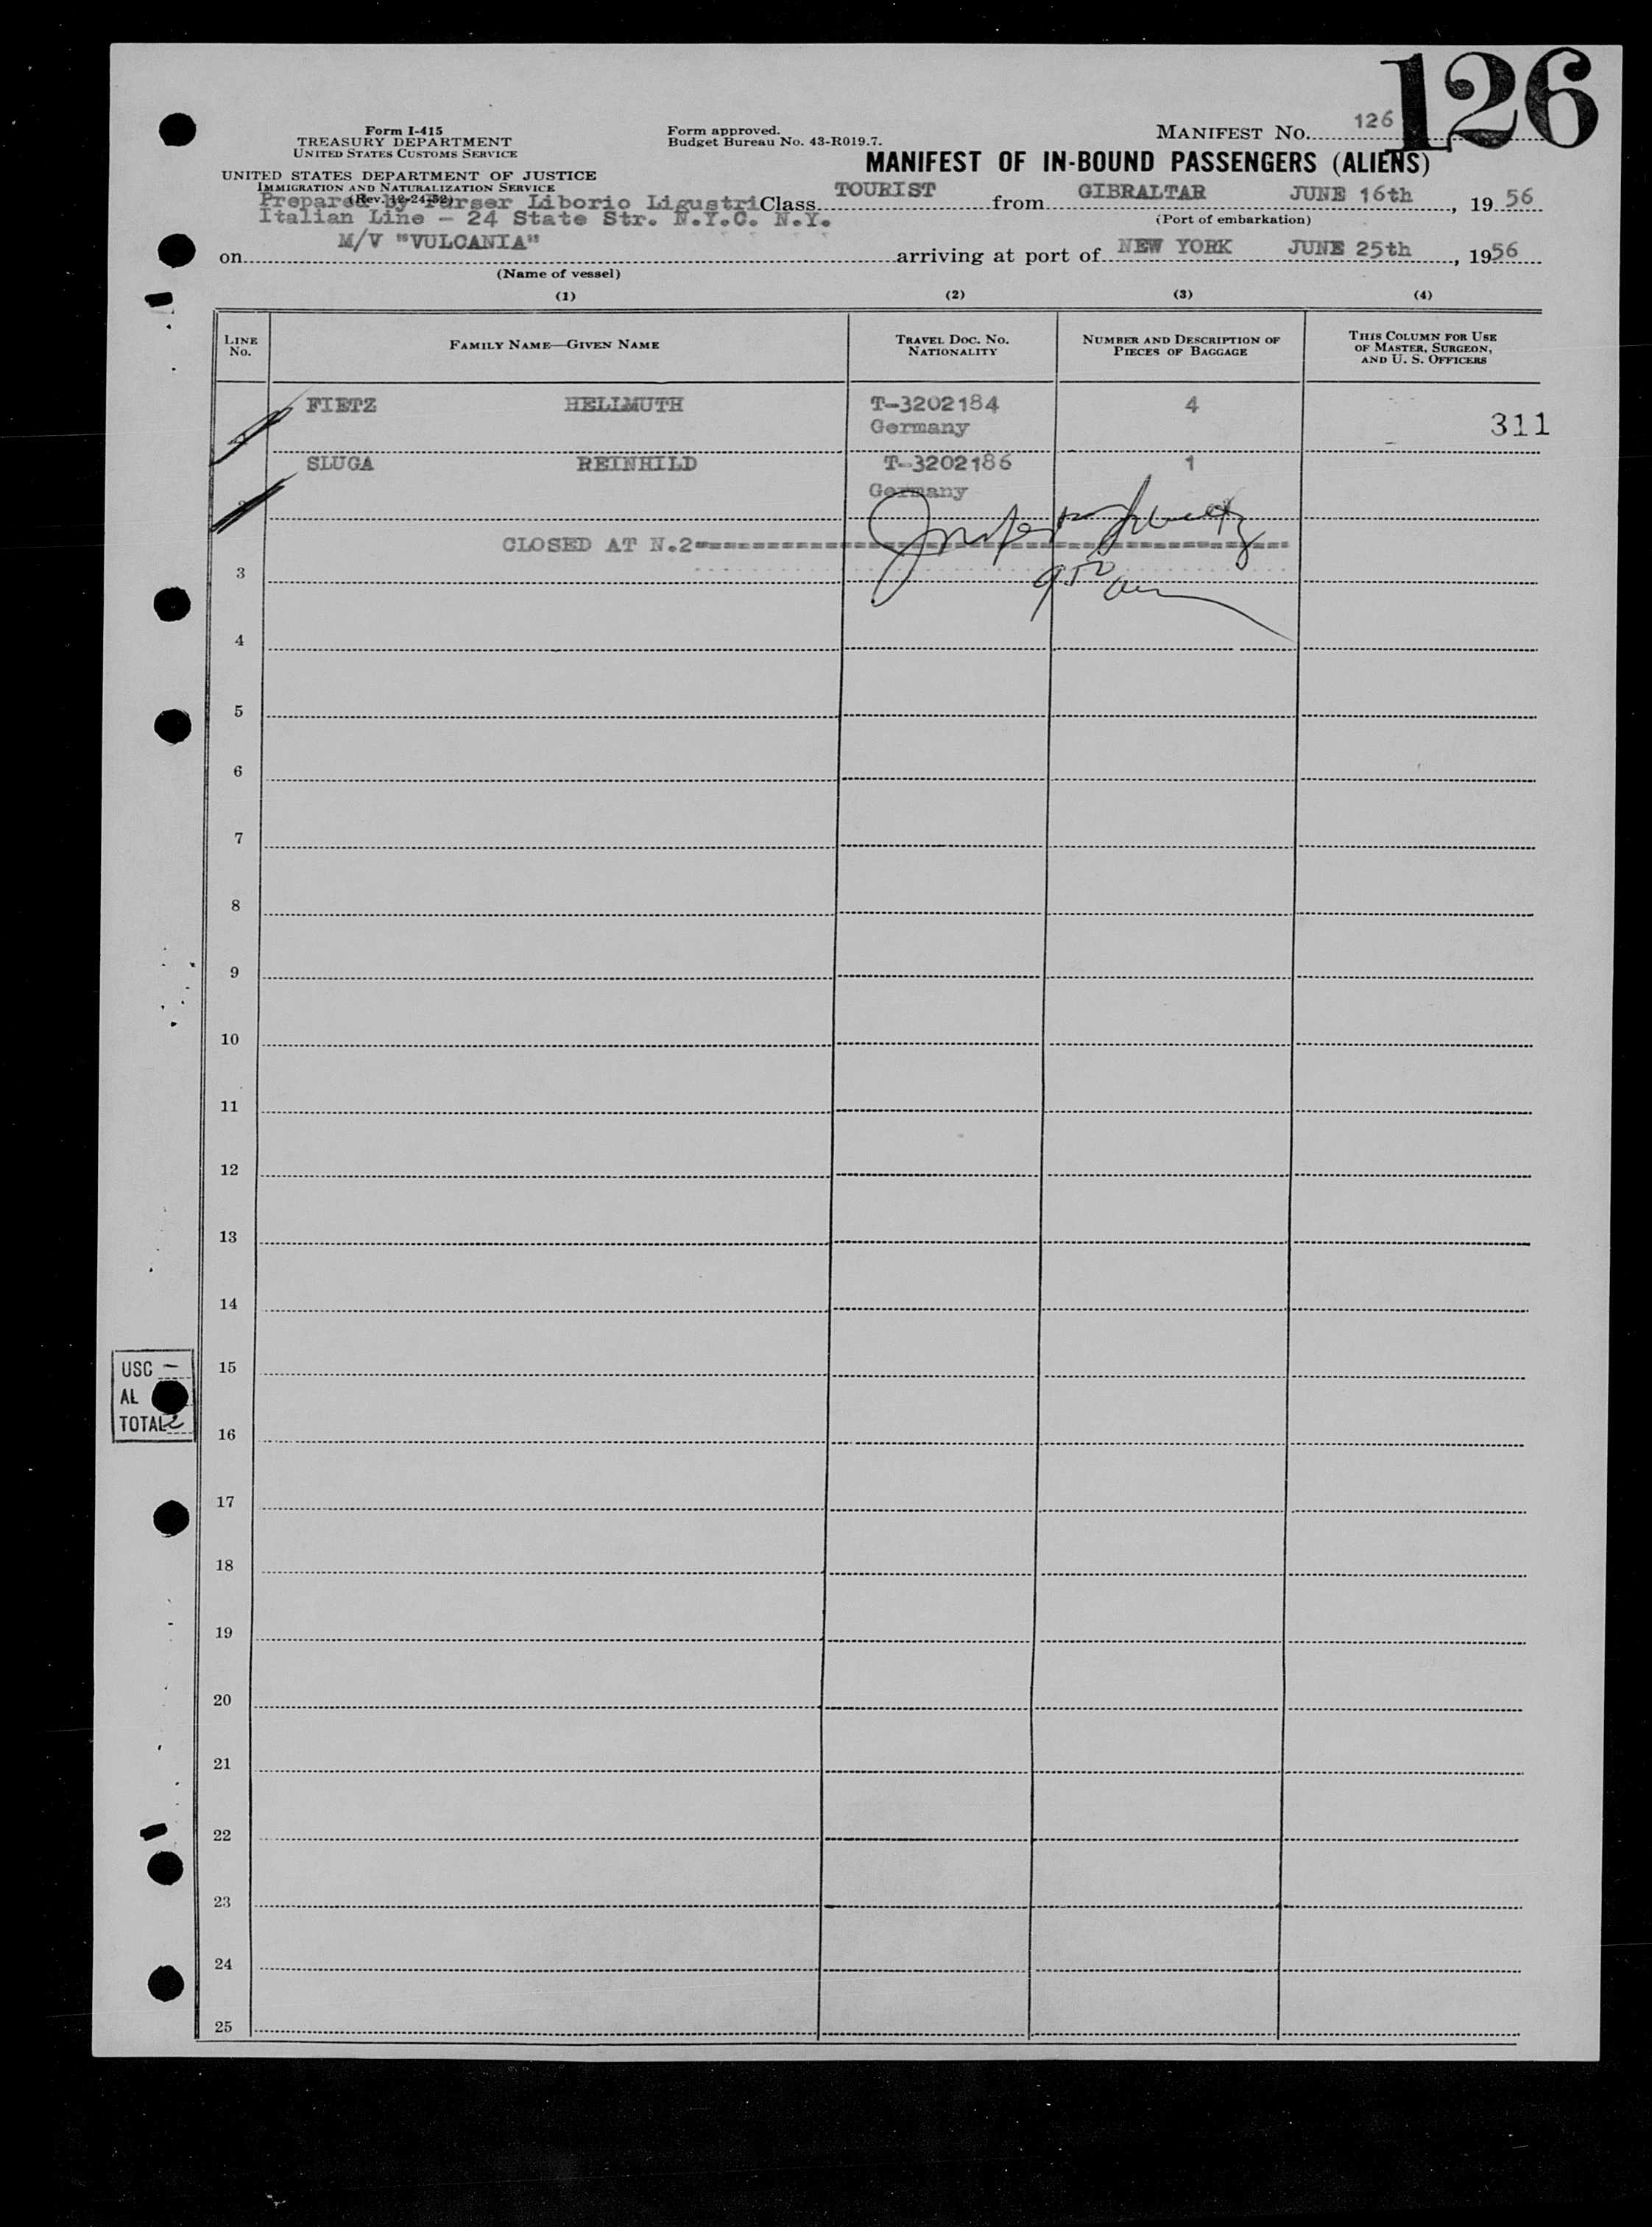 126
Form I-415
TREASURY DEPARTMENT
UNITED STATES CUSTOMS SERVICE
UNITED STATES DEPARTMENT OF JUSTICE
IMMIGRATION AND NATURALIZATION SERVICE
(Rev. 12-24-52)
Form approved.
Budget Bureau No. 43-R019.7.
MANIFEST No. 126
MANIFEST OF IN-BOUND PASSENGERS (ALIENS)
Prepared by Purser Liborio Ligustri
Italian Line - 24 State Str. N.Y.C. N.Y.
Class TOURIST from GIBRALTAR JUNE 16th, 1956
(Port of embarkation)
on M/V "VULCANIA" arriving at port of NEW YORK JUNE 25th, 1956
(Name of vessel)
(1) (2) (3) (4)
LINE No. FAMILY NAME—GIVEN NAME TRAVEL DOC. No. NATIONALITY NUMBER AND DESCRIPTION OF PIECES OF BAGGAGE THIS COLUMN FOR USE OF MASTER, SURGEON, AND U. S. OFFICERS
FIETZ HELLMUTH T-3202184 4
Germany 311
SLUGA REINHILD T-3202186 1
Germany
CLOSED AT N.2
3
4
5
6
7
8
9
10
11
12
13
14
15
16
17
18
19
20
21
22
23
24
25
USC -
AL
TOTAL 2